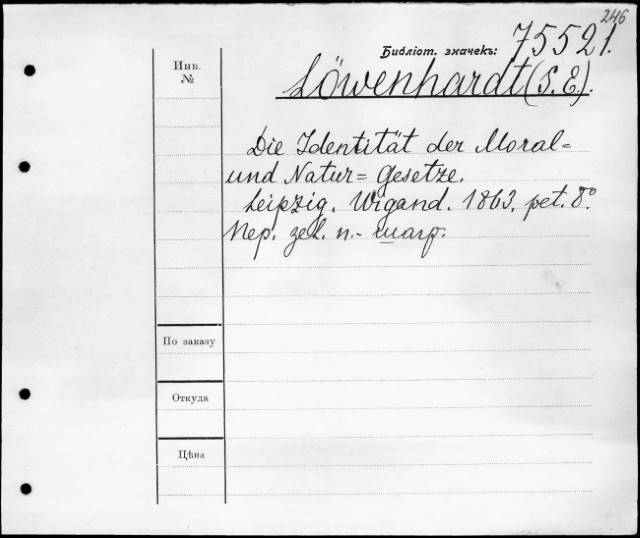 246
Библіот. значекъ: 75521.
Инв.
№
Löwenhardt (S. E).
Die Identität der Moral=
und Natur= Gesetze.
Leipzig. Wigand. 1863. pet. 8°.
Пер. зел. п.- шагр.
По заказу
Откуда
Цѣна